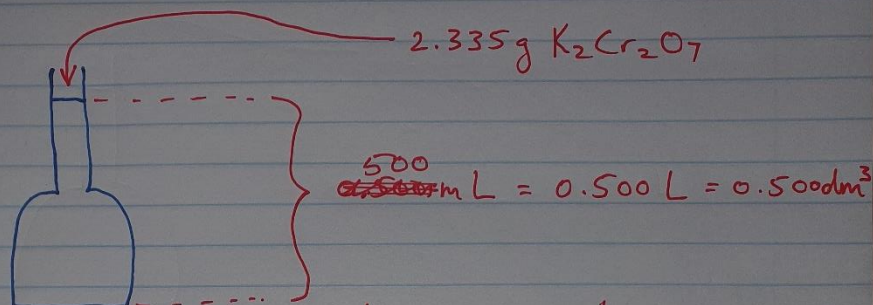 2.335g K₂Cr₂O₇
500
mL = 0.500 L = 0.500dm³